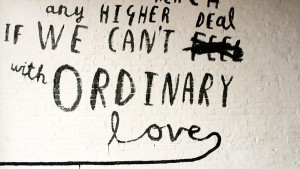 any HIGHER DEAL
IF WE CAN'T
with ORDINARY
love